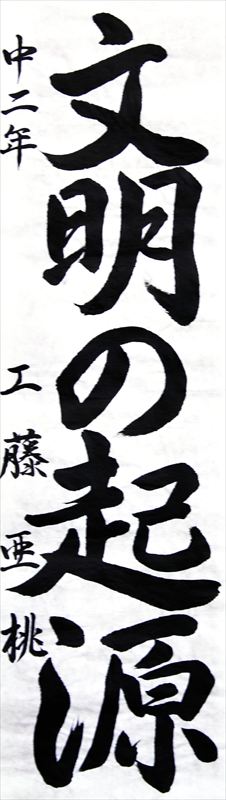 文明の起源
中二年 工藤亜桃